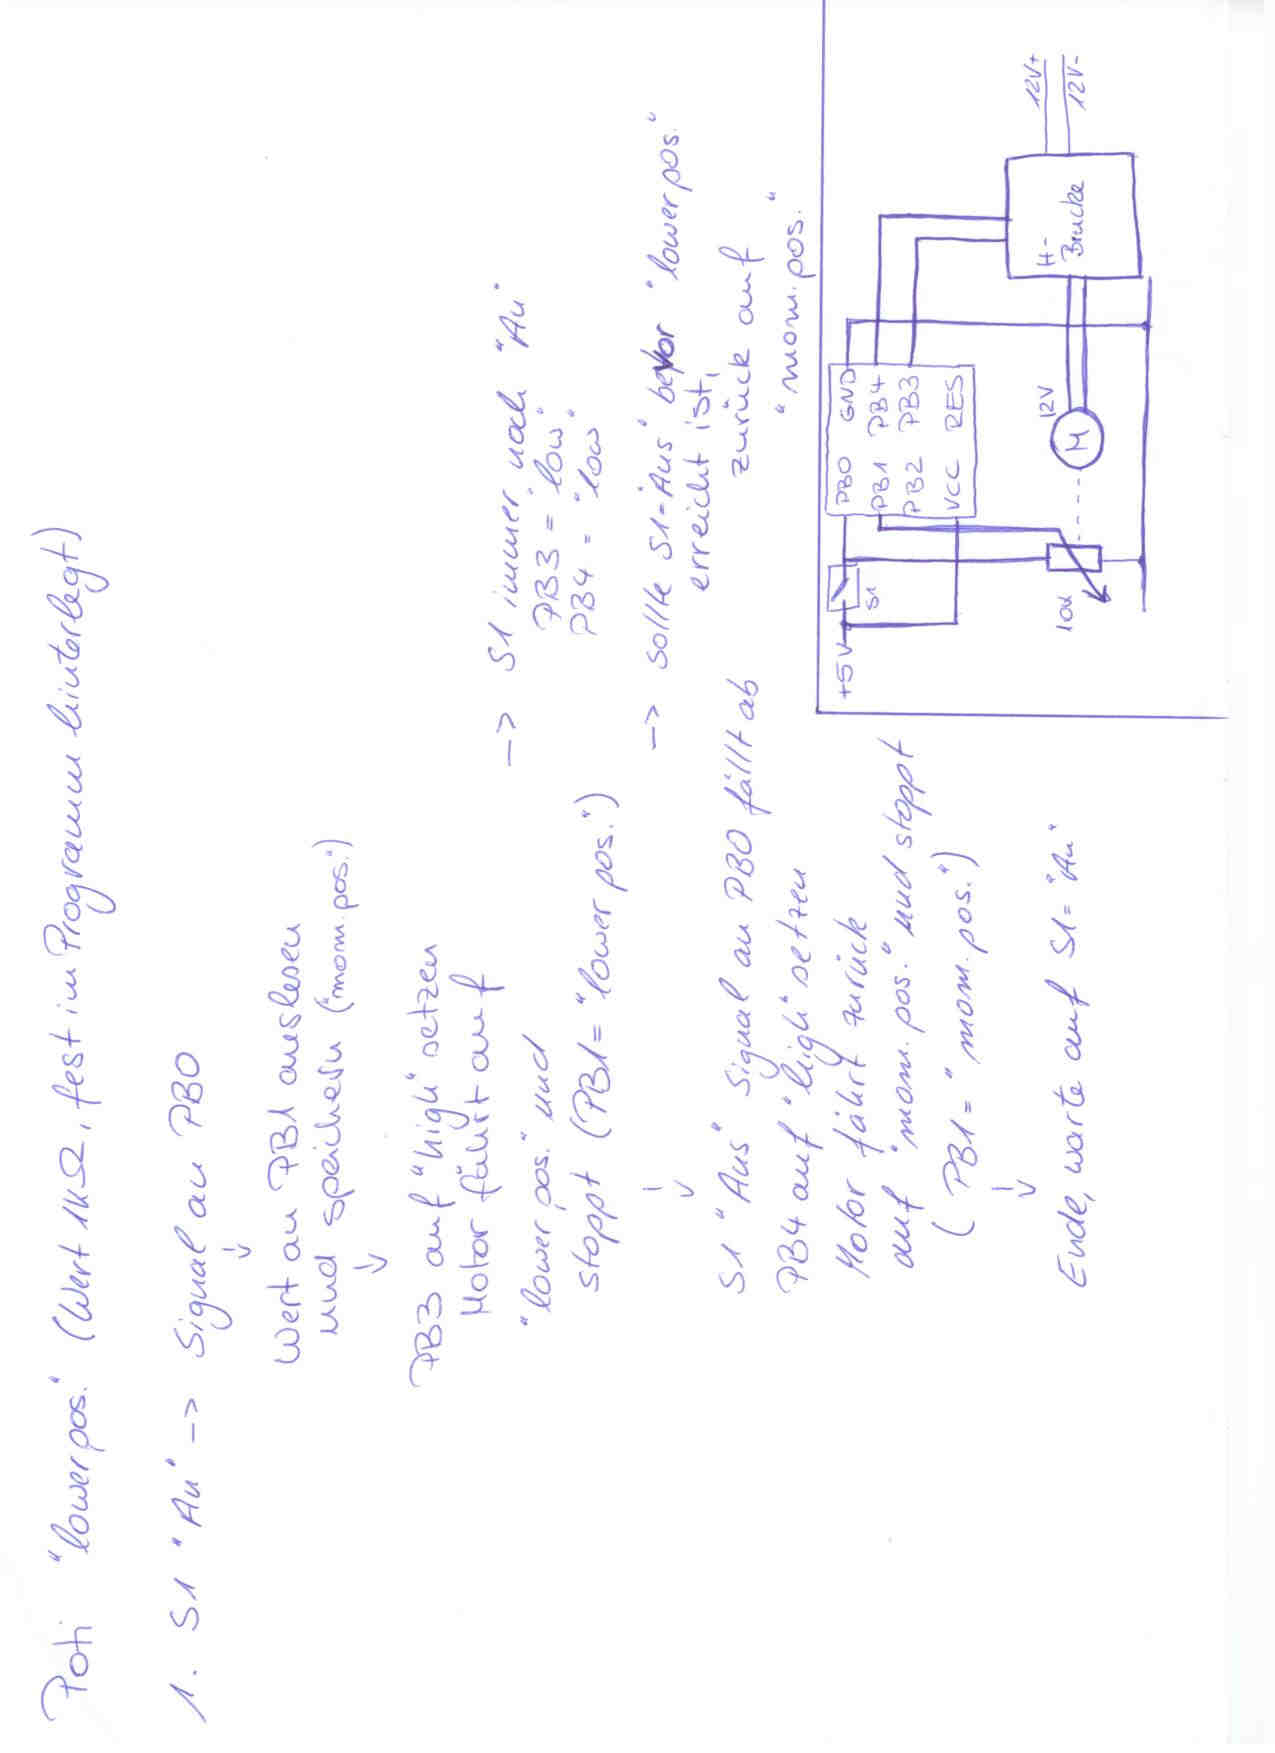 Poti "lower pos." (Wert 1kΩ, fest im Programm hinterlegt)
1. S1 "An" -> Signal an PB0
Wert an PB1 auslesen
und speichern ("mom.pos.")
PB3 auf "high" setzen
Motor fährt auf
"lower pos." und
stoppt (PB1="lower pos.")
-> S1 immer noch "An"
PB3 = "low"
PB4 = "low"
-> sollte S1="Aus" bevor "lower pos."
erreicht ist,
zurück auf
"mom.pos."
S1 "Aus" Signal an PB0 fällt ab
PB4 auf "high" setzen
Motor fährt zurück
auf "mom. pos." und stoppt
(PB1="mom. pos.")
Ende, warte auf S1="An"
+5V
S1
PB0 GND
PB1 PB4
PB2 PB3
VCC RES
10k
M
12V
H-
Brücke
12V+
12V-